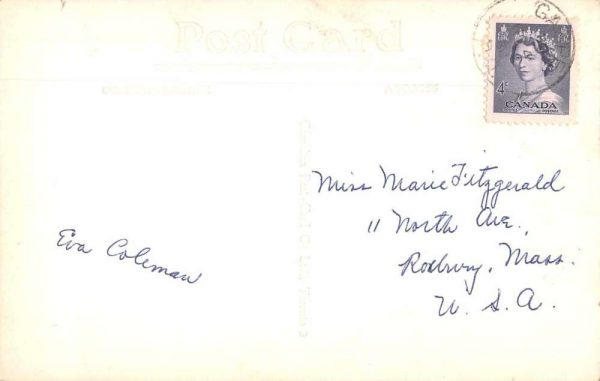 Post Card
4¢
CANADA
Miss Marie Fitzgerald
11 North Ave.,
Roxbury, Mass.
U. S. A.
Eva Coleman